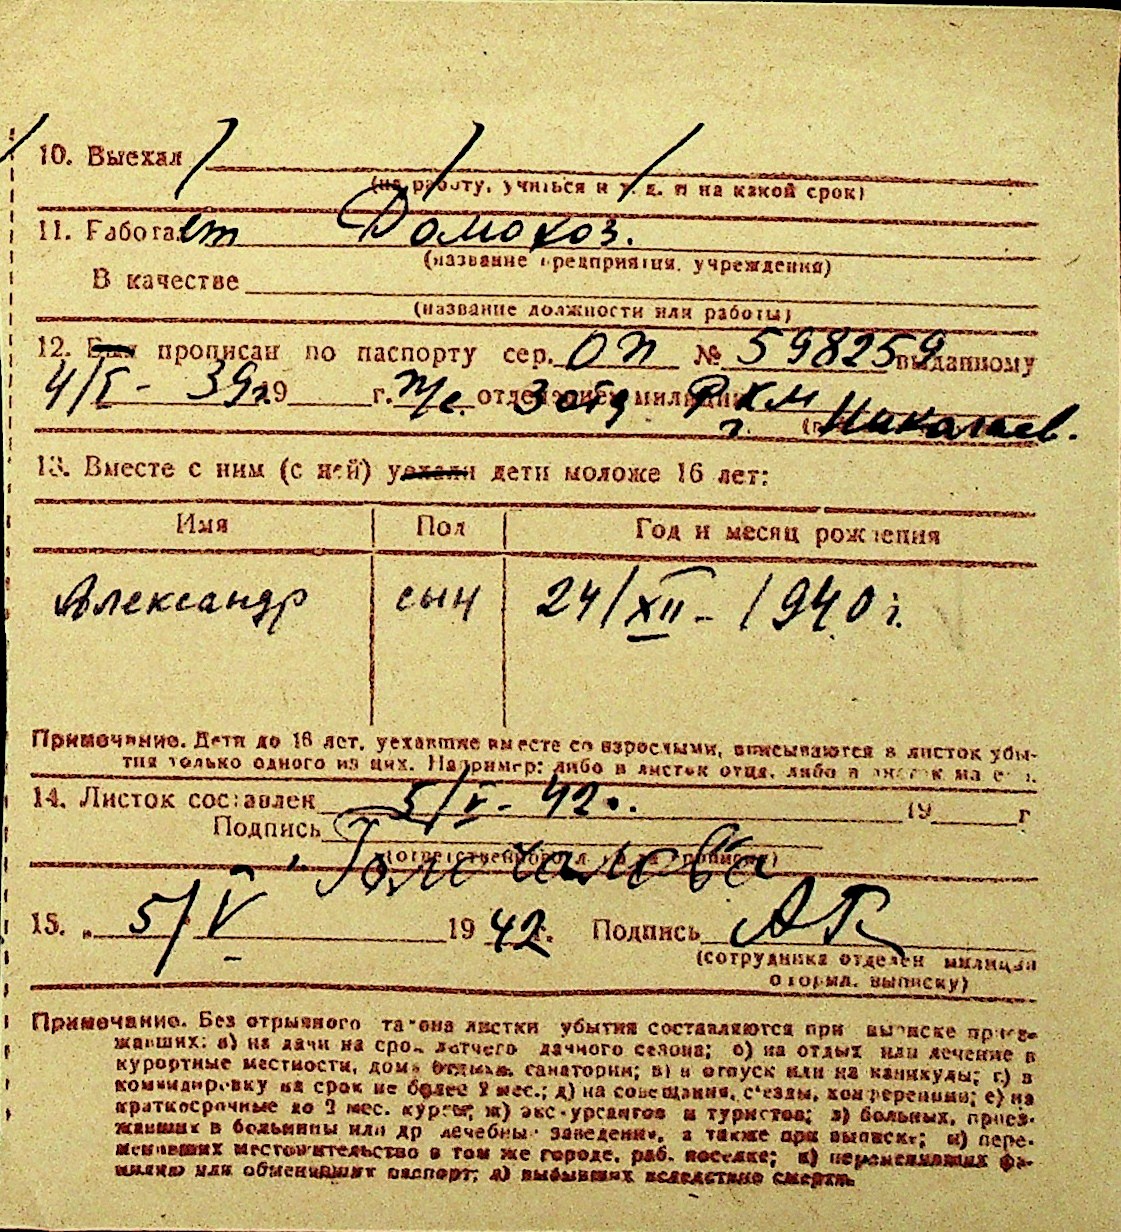 10. Выехал
(на работу, учиться и т. д. и на какой срок)
11. Работает Домохоз.
(название предприятия, учреждения)
В качестве
(название должности или работы)
12. Был прописан по паспорту сер. ОП № 598259 выданному
4/I - 39 г. 19 г. отделением милиции 3 отд РКМ
г. Николаев.
13. Вместе с ним (с ней) уехали дети моложе 16 лет:
Имя Пол Год и месяц рождения
Александр сын 24/XII - 1940 г.
Примечание. Дети до 16 лет, уехавшие вместе со взрослыми, вписываются в листок убы-
тия только одного из них. Например: либо в листок отца, либо в листок матери.
14. Листок составлен 5/V - 42 г. 19 г
Подпись
15. „ 5/V 1942 г. Подпись
(сотрудника отделен милиции
оформл. выписку)
Примечание. Без отрывного талона листки убытия составляются при выписке приез-
жавших: а) на дачи на срок летнего дачного сезона; б) на отдых или лечение в
курортные местности, дома отдыха, санатории; в) в отпуск или на каникулы; г) в
командировку на срок не более 2 мес.; д) на совещания, с'езды, конференции; е) на
краткосрочные до 2 мес. курсы; ж) экскурсантов и туристов; з) больных, приез-
жавших в больницы или др лечебные заведения, а также при выписке; и) пере-
менивших местожительство в том же городе, раб. поселке; к) переменивших фа-
милию или обменивших паспорт; л) выбывших вследствие смерти.